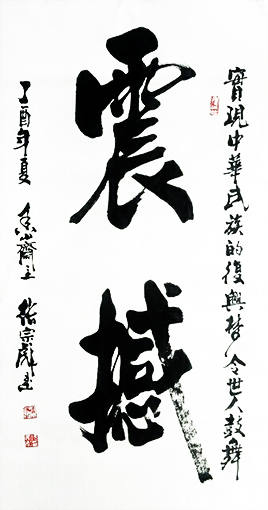 實現中華民族的復興夢令世人鼓舞
震撼
丁酉年夏 齋主 宗 書